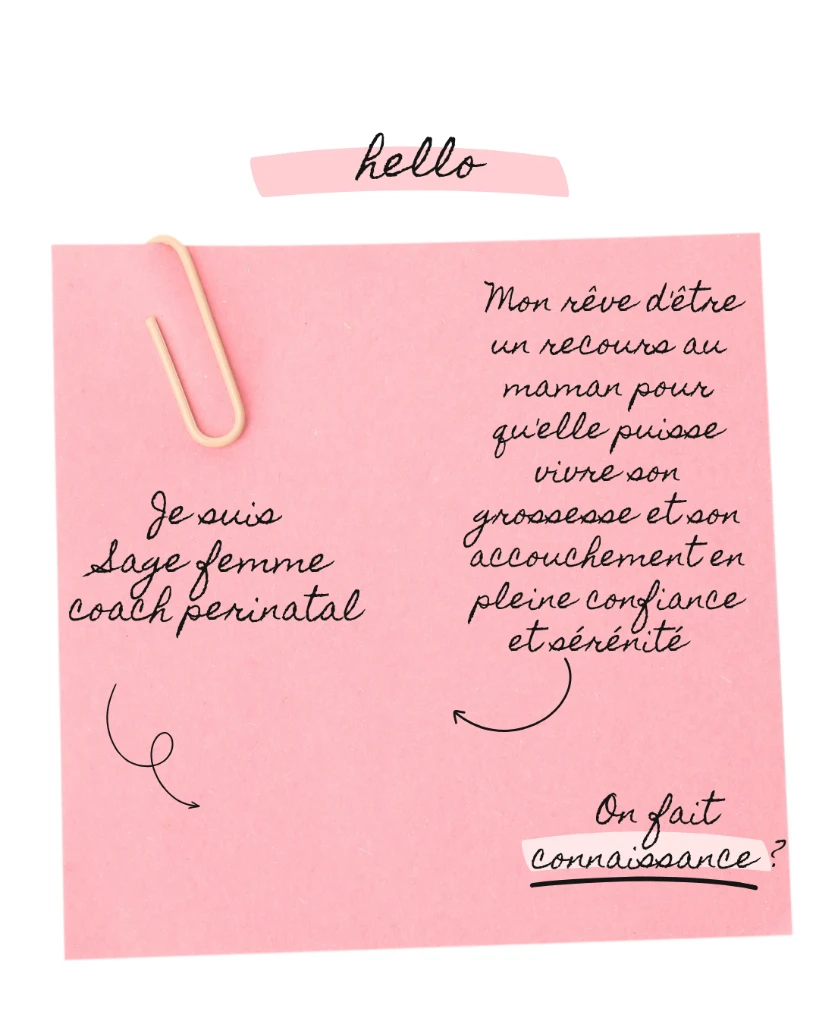 hello
Je suis
Sage femme
coach perinatal
Mon rêve d'être
un recours au
maman pour
qu'elle puisse
vivre son
grossesse et son
accouchement en
pleine confiance
et sérénité
On fait
connaissance ?